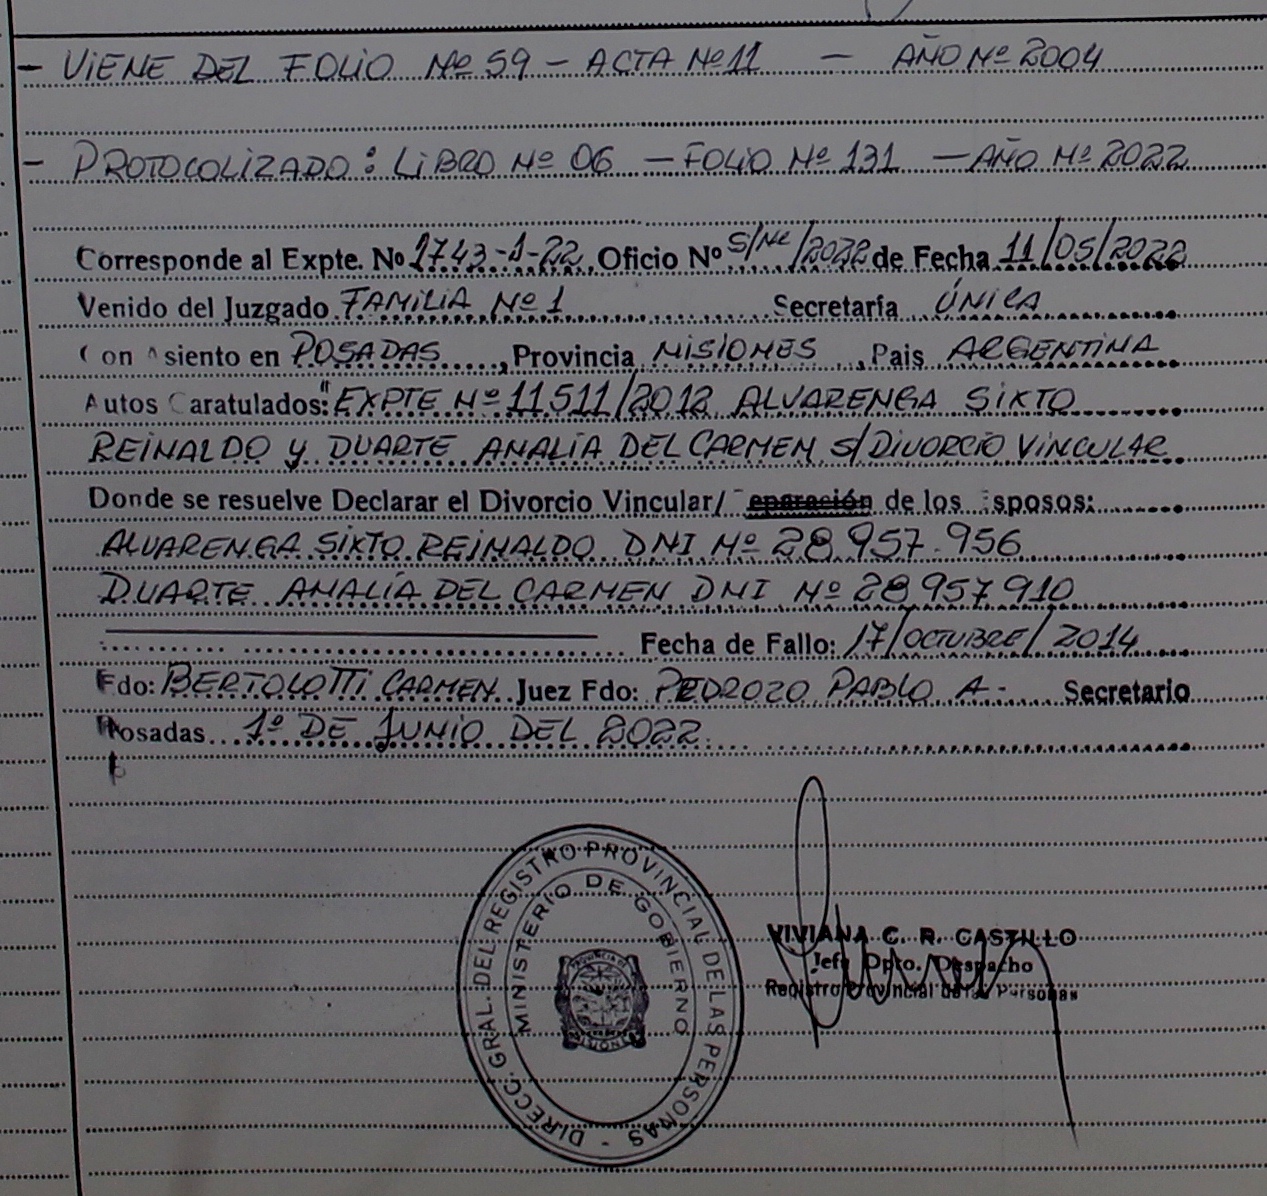 - VIENE DEL FOLIO Nº 59 - ACTA Nº 11 - AÑO Nº 2004
- PROTOCOLIZADO: LIBRO Nº 06 - FOLIO Nº 131 - AÑO Nº 2022
Corresponde al Expte. Nº 1743-1-22 Oficio Nº S/Nº/2022 de Fecha 11/05/2022
Venido del Juzgado FAMILIA Nº 1 Secretaría ÚNICA
Con Asiento en POSADAS, Provincia MISIONES, Pais ARGENTINA
Autos Caratulados: "EXPTE Nº 11511/2012 ALVARENGA SIXTO
REINALDO y DUARTE ANALÍA DEL CARMEN S/DIVORCIO VINCULAR
Donde se resuelve Declarar el Divorcio Vincular/ eparación de los Esposos:
ALVARENGA SIXTO REINALDO DNI Nº 28.957.956
DUARTE ANALÍA DEL CARMEN DNI Nº 28957910
Fecha de Fallo: 17/OCTUBRE/2014
Fdo: BERTOLOTTI CARMEN Juez Fdo: PEDROZO PABLO A- Secretario
Posadas 1º DE JUNIO DEL 2022
DIRECC. GRAL. DEL REGISTRO PROVINCIAL DE LAS PERSONAS -
MINISTERIO DE GOBIERNO
PROVINCIA DE
MISIONES
VIVIANA C. R. CASTILLO
Jefe Dpto. Despacho
Registro Provincial de las Personas